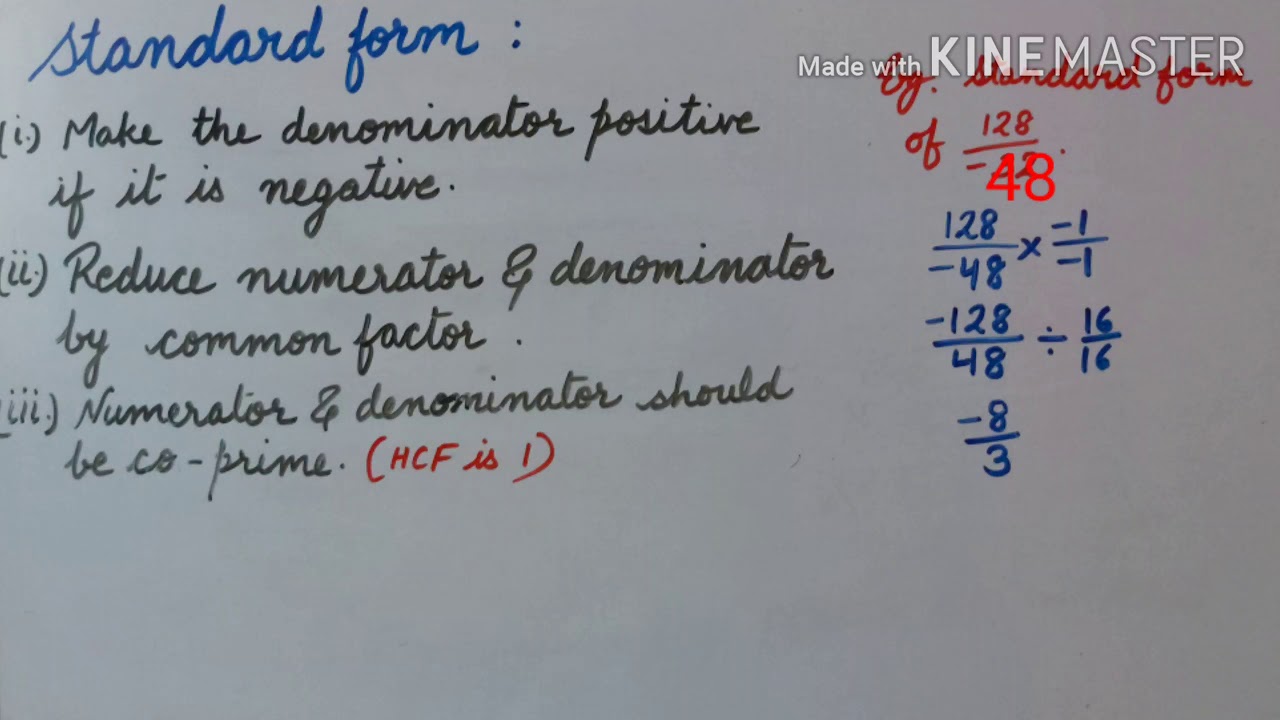 Standard form :
(i.) Make the denominator positive
if it is negative.
(ii.) Reduce numerator & denominator
by common factor .
(iii.) Numerator & denominator should
be co-prime. (HCF is 1)
Made with KINEMASTER
Eg. Standard form
of 128/-48 .
128/-48 × -1/-1
-128/48 ÷ 16/16
-8/3